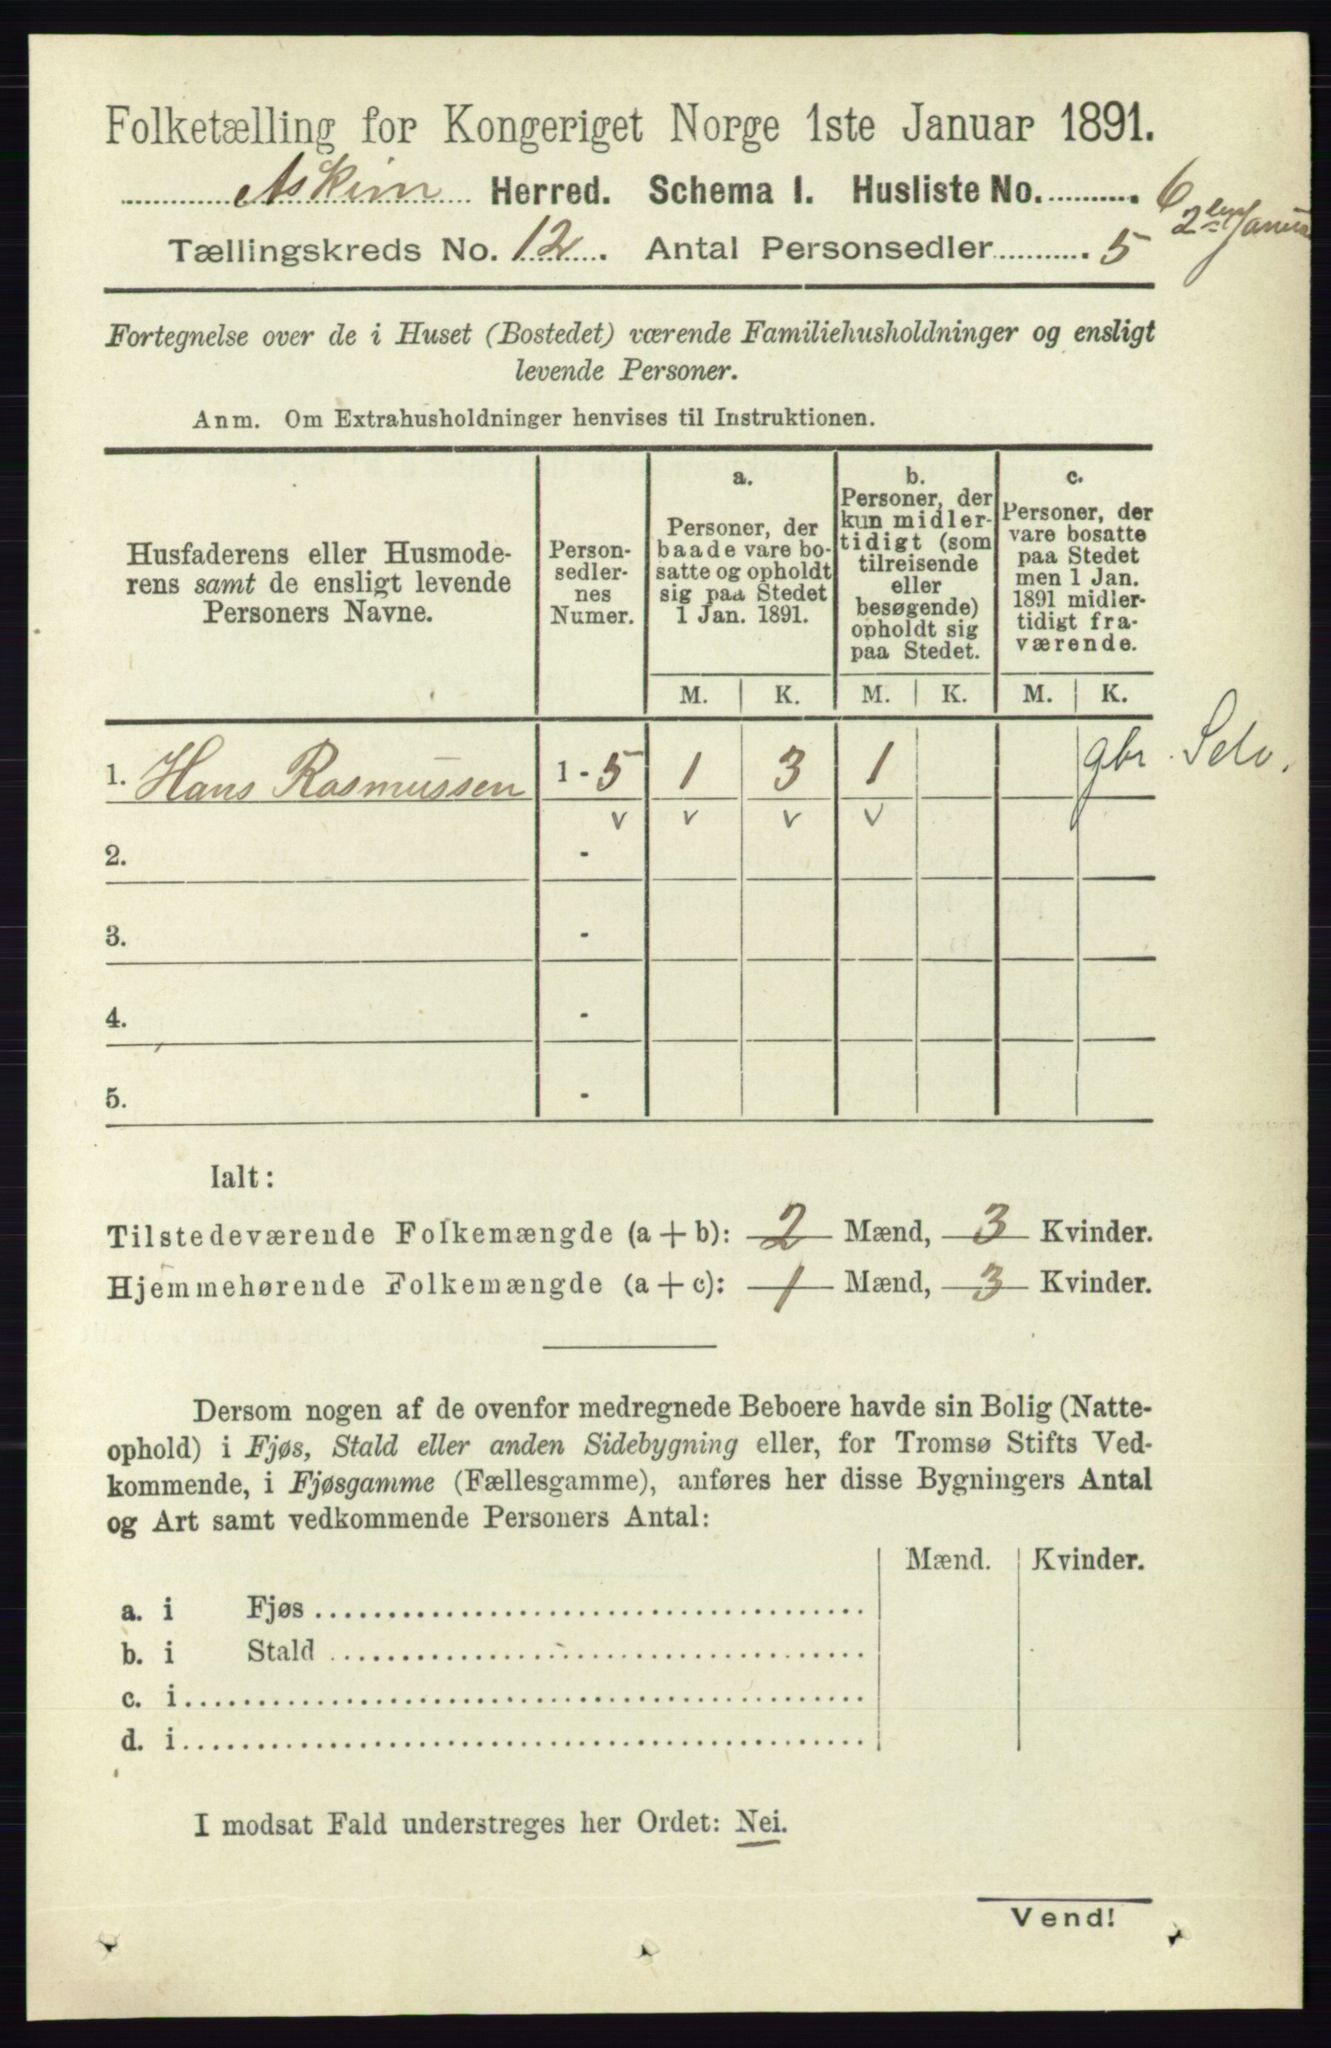 Folketælling for Kongeriget Norge 1ste Januar 1891.
Askim Herred. Schema 1. Husliste No. 6
2den Januar
Tællingskreds No. 12. Antal Personsedler 5
Fortegnelse over de i Huset (Bostedet) værende Familiehusholdninger og ensligt
levende Personer.
Anm. Om Extrahusholdninger henvises til Instruktionen.
Husfaderens eller Husmode-
rens samt de ensligt levende
Personers Navne.
Person-
sedler-
nes
Numer.
a.
Personer, der
baade vare bo-
satte og opholdt
sig paa Stedet
1 Jan. 1891.
b.
Personer, der
kun midler-
tidigt (som
tilreisende
eller
besøgende)
opholdt sig
paa Stedet.
c.
Personer, der
vare bosatte
paa Stedet
men 1 Jan.
1891 midler-
tidigt fra-
værende.
M. K. M. K. M. K.
1. Hans Rasmussen 1 - 5 1 3 1 gbr. Selv.
v v v v
2. -
3. -
4. -
5. -
Ialt:
Tilstedeværende Folkemængde (a + b): 2 Mænd, 3 Kvinder.
Hjemmehørende Folkemængde (a + c): 1 Mænd, 3 Kvinder.
Dersom nogen af de ovenfor medregnede Beboere havde sin Bolig (Natte-
ophold) i Fjøs, Stald eller anden Sidebygning eller, for Tromsø Stifts Ved-
kommende, i Fjøsgamme (Fællesgamme), anføres her disse Bygningers Antal
og Art samt vedkommende Personers Antal:
Mænd. Kvinder.
a. i Fjøs
b. i Stald
c. i
d. i
I modsat Fald understreges her Ordet: Nei.
Vend!